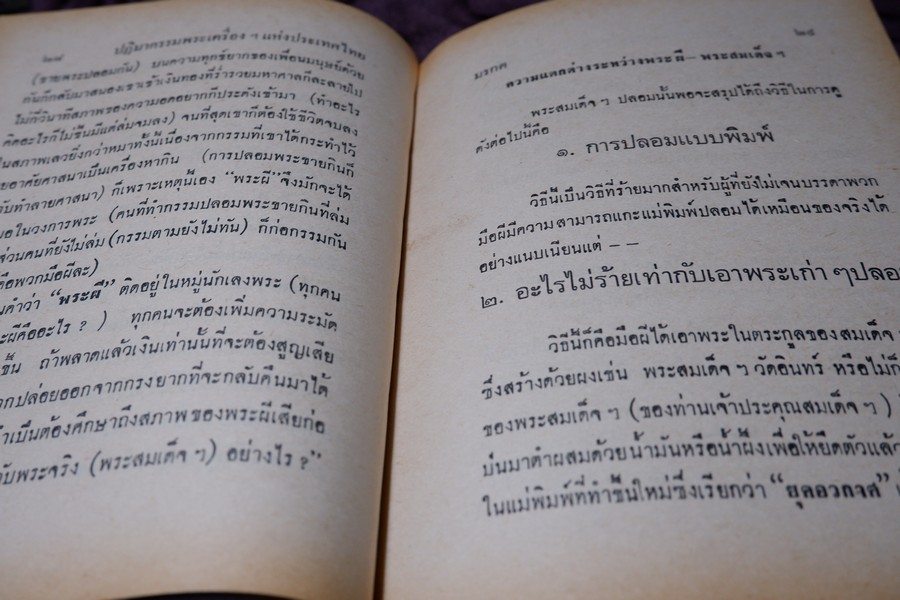 ๒๘ ปฏิมากรรมพระเครื่อง ฯ แห่งประเทศไทย
(ขายพระปลอมกัน) บนความทุกข์ยากของเพื่อนมนุษย์ด้วย
กันก็กลับมาสนองเขาเข้าเงินทองที่ร่ำรวยมหาศาลก็ละลายไป
ไม่กี่วินาทีสภาพของความอดอยากก็ประดังเข้ามา (ทำอะไร
คิดอะไรก็ไม่ขึ้นมีแต่ล่มจมลง) จนที่สุดเขาก็ต้องใช้ชีวิตจบลง
ในสภาพเลวยิ่งกว่าหมาทั้งนี้เนื่องจากกรรมที่เขาได้กระทำไว้
อาศัยศาสนาเป็นเครื่องหากิน (การปลอมพระขายกินก็
ทำลายศาสนา) ก็เพราะเหตุนี้เอง "พระผี" จึงมักจะได้
ในวงการพระ (คนที่ทำกรรมปลอมพระขายกินที่ล่ม
ส่วนคนที่ยังไม่ล่ม (กรรมตามยังไม่ทัน) ก็ก่อกรรมกัน
คือพวกมือผีละ)
คำว่า "พระผี" ติดอยู่ในหมู่นักเลงพระ (ทุกคน
ผีคืออะไร ? ) ทุกคนจะต้องเพิ่มความระมัด
ขึ้น ถ้าพลาดแล้วเงินเท่านั้นที่จะต้องสูญเสีย
ปล่อยออกจากกรงยากที่จะกลับคืนมาได้
เป็นต้องศึกษาถึงสภาพของพระผีเสียก่อ
พระจริง (พระสมเด็จ ฯ) อย่างไร ?"
มรกต ๒๙
ความแตกต่างระหว่างพระผี – พระสมเด็จ ฯ
พระสมเด็จ ฯ ปลอมนั้นพอจะสรุปได้ถึงวิธีในการดู
ดังต่อไปนี้คือ
๑. การปลอมแบบพิมพ์
วิธีนี้เป็นวิธีที่ร้ายมากสำหรับผู้ที่ยังไม่เจนบรรดาพวก
มือผีมีความสามารถแกะแม่พิมพ์ปลอมได้เหมือนของจริงได้
อย่างแนบเนียนแต่ – –
๒. อะไรไม่ร้ายเท่ากับเอาพระเก่า ๆ ปลอ
วิธีนี้ก็คือมือผีได้เอาพระในตระกูลของสมเด็จ
ซึ่งสร้างด้วยผงเช่น พระสมเด็จ ฯ วัดอินทร์ หรือไม่ก็
ของพระสมเด็จ ฯ (ของท่านเจ้าประคุณสมเด็จ ฯ)
ป่นมาตำผสมด้วยน้ำมันหรือน้ำผึ้งเพื่อให้ยึดตัวแล้ว
ในแม่พิมพ์ที่ทำขึ้นใหม่ซึ่งเรียกว่า